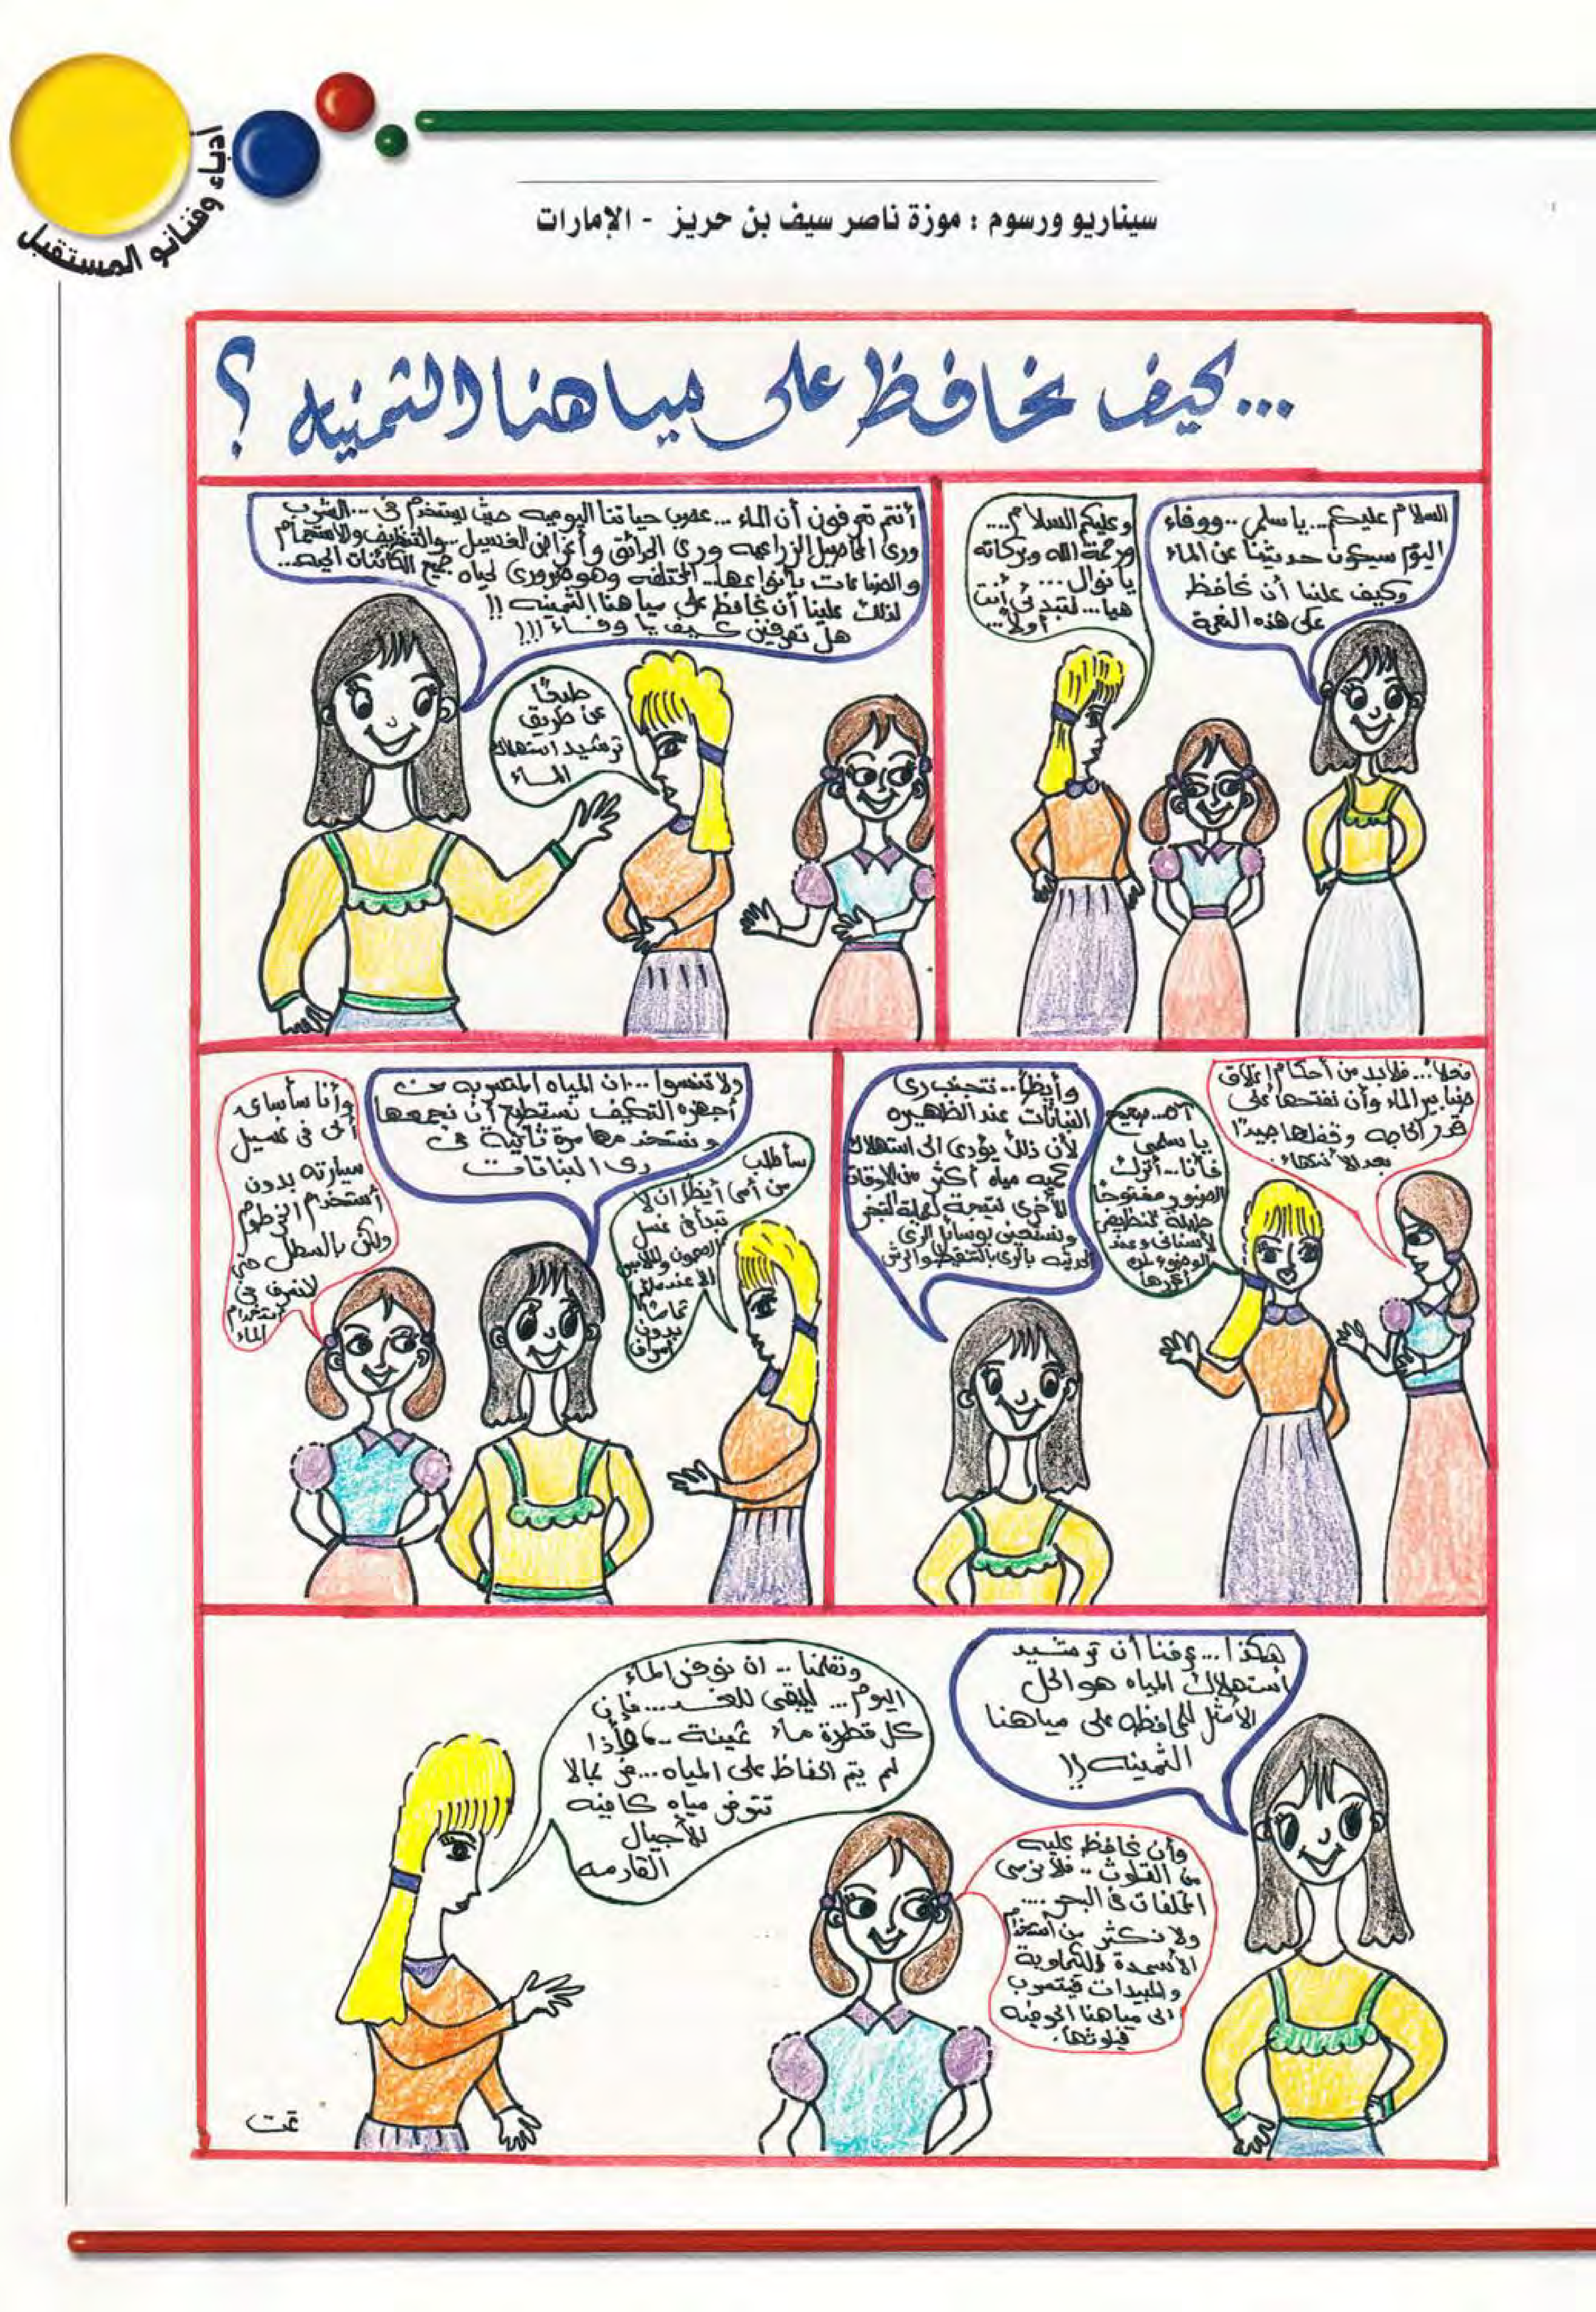 أدباء وفنانو المستقبل
سيناريو ورسوم : موزة ناصر سيف بن حريز - الإمارات
...كيف نحافظ على مياهنا الثمينه ؟
السلام عليكم...يا سلمى..ووفاء
اليوم سيكون حديثنا عن الماء
وكيف علينا أن نحافظ
على هذه النعمة
وعليكم السلام....
ورحمة الله وبركاته
يا نوال....
هيا...لتبدئي أنت
أولاً...
أنتم تعرفون أن الماء...عصب حياتنا اليوميه حيث يستخدم في...الشرب
وري المحاصيل الزراعيه وري الحدائق وأغراض الغسيل..والتنظيف والاستحمام
والصناعات بأنواعها..المختلفه وهو ضروري لحياه جميع الكائنات الحيه...
لذلك علينا أن نحافظ على مياهنا الثمينه !!
هل تعرفين كيف يا وفاء !!!
طبعًا
عن طريق
ترشيد استهلاك
الماء
فعلاً...فلابد من أحكام إغلاق
صنابير الماء وأن نفتحها على
قدر الحاجه وقفلها جيدًا
بعد الأنتهاء.
آه...صحيح
يا سلمى
فأنا...أترك
الصنبور مفتوحًا
طيلة تنظيفي
لأسناني وعند
الوضوء لن
أكررها
وأيظاً...نتجنب ري
النباتات عند الظهيره
لأن ذلك يؤدي الى استهلاك
كميه مياه أكثر من الاوقات
الأخرى نتيجة لعملية التبخر
ونستعين بوسائل الري
الحديثه بالري بالتنقيط والرش
ولا تنسوا...ان المياه المتسربه من
أجهزه التكيف نستطيع أن نجمعها
ونستخدمها مرة ثانية في
ري النباتات
سأطلب
من أمي أيظًا ان لا
تبدأ في غسل
الصحون والملابس
الا عند ملئها
تمامًا
بدون
إسراف
وأنا سأساعد
أبي في غسيل
سيارته بدون
أستخدام الخرطوم
ولكن بالسطل حتى
لانسرف في
استخدام
الماء
هكذا...عرفنا أن ترشيد
أستهلاك المياه هو الحل
الأمثل للمحافظه على مياهنا
الثمينه !!
وأن نحافظ عليه
من التلوث..فلا نرمي
المخلفات في البحر....
ولا نكثر من استخدام
الأسمدة الكيماوية
والمبيدات فيتسرب
الى مياهنا الجوفيه
فيلوثها.
وتعلمنا..ان نوفر الماء
اليوم...ليبقى للغد...فإن
كل قطرة ماء ثمينة..فإذا
لم يتم الحفاظ على المياه...فربما لا
تتوفر مياه كافيه
للأجيال
القادمه
تمت